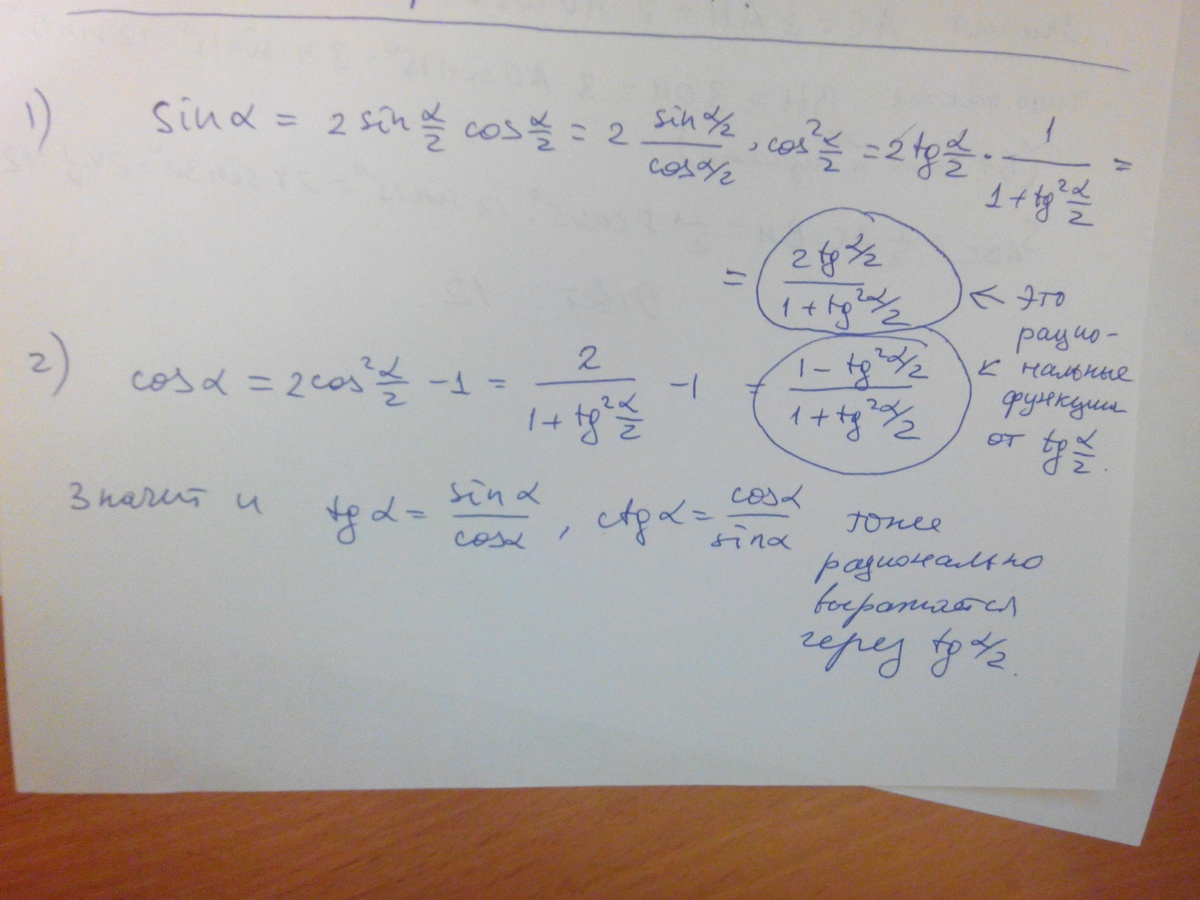 1) sin α = 2 sin α/2 cos α/2 = 2 sin α/2 / cos α/2 · cos² α/2 = 2 tg α/2 · 1 / (1 + tg² α/2) =
= 2 tg α/2 / (1 + tg² α/2) ← Это
рацио-
2) cos α = 2cos² α/2 - 1 = 2 / (1 + tg² α/2) - 1 = (1 - tg² α/2) / (1 + tg² α/2) < нальные
функции
от tg α/2.
Значит и tg α = sin α / cos α , ctg α = cos α / sin α тоже
рационально
выражается
через tg α/2.